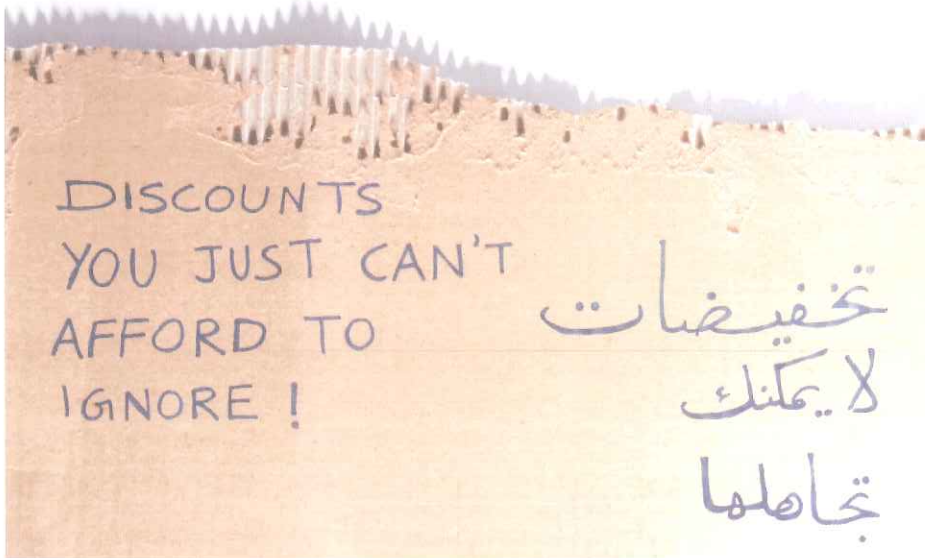 DISCOUNTS
YOU JUST CAN'T
AFFORD TO
IGNORE !
تخفيضات
لا يمكنك
تجاهلها